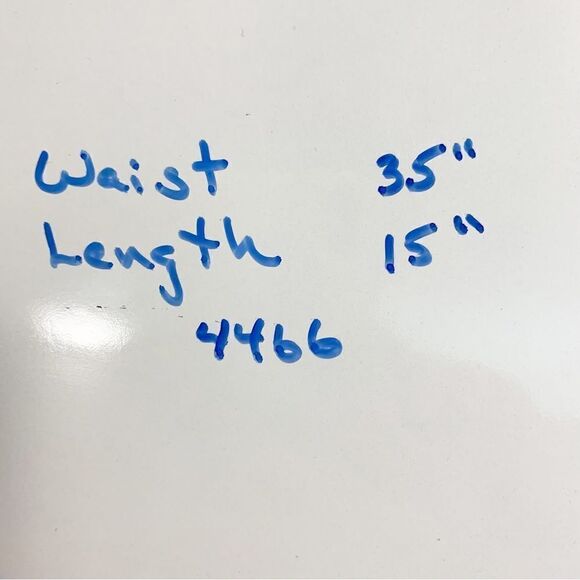 Waist 35"
Length 15"
4466